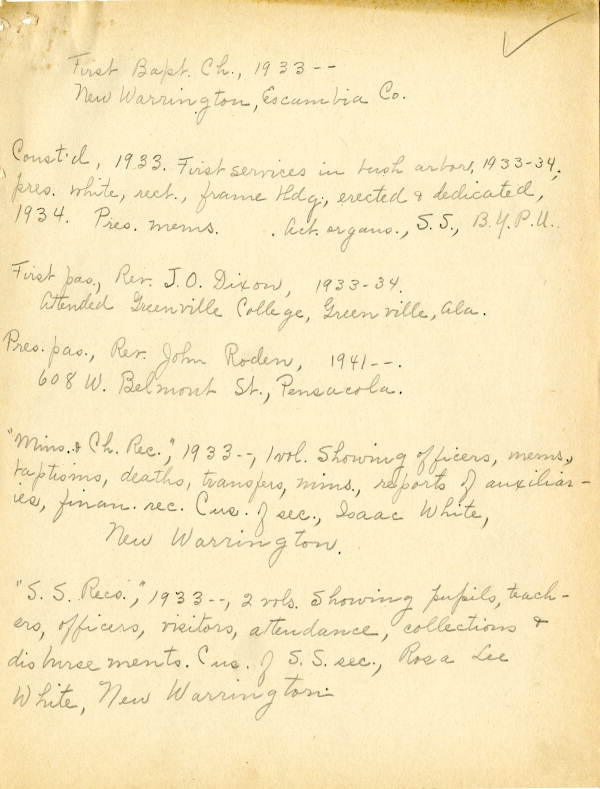 First Bapt. Ch., 1933--
New Warrington, Escambia Co.
Const'd, 1933. First services in bush arbor, 1933-34;
pres. white, rect., frame bldg., erected & dedicated,
1934. Pres. mems. . Act. organs., S.S., B.Y.P.U..
First pas., Rev. J.O. Dixon, 1933-34.
Attended Greenville College, Greenville, Ala.
Pres. pas., Rev. John Roden, 1941--.
608 W. Belmont St., Pensacola.
"Mins. & Ch. Rec.", 1933--, 1 vol. Showing officers, mems.,
baptisms, deaths, transfers, mins., reports of auxiliar-
ies, finan. rec. Cus. of sec., Isaac White,
New Warrington.
"S. S. Recs.", 1933--, 2 vols. Showing pupils, teach-
ers, officers, visitors, attendance, collections &
disbursements. Cus. of S.S. sec., Rosa Lee
White, New Warrington.